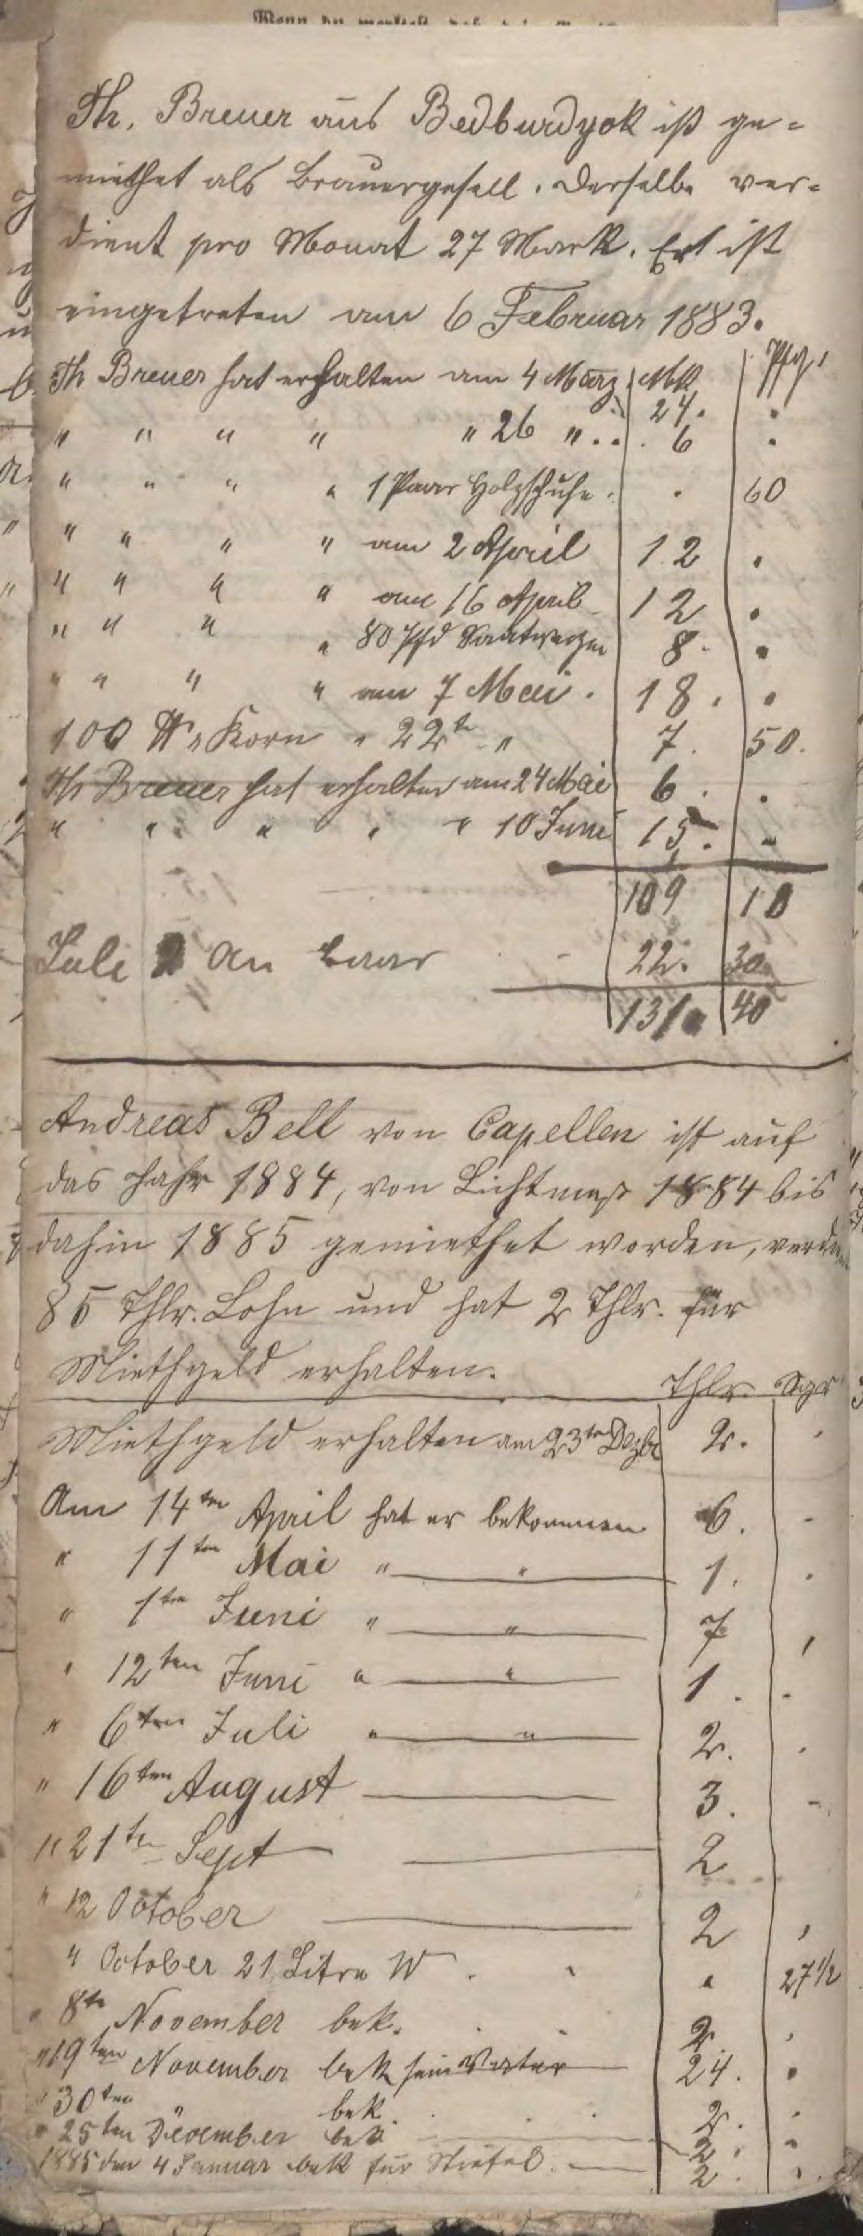 Th. Breuer aus Bedburdyck ist ge-
miethet als Brauergesell. Derselbe ver-
dient pro Monat 27 Mark. Er ist
eingetreten am 6 Februar 1883.
Th Breuer hat erhalten am 4 März Mk Pfg.
24. .
" " " " " 26 " . . 6 .
" " " " 1 Paar Holzschuhe . . 60
" " " " am 2 April 12 .
" " " " am 16 April 12 .
" " " " 80 Pfd Saatweizen 8. .
" " " " am 7 Mai . 18. .
100 Korn " 22t " 7. 50.
Th Breuer hat erhalten am 24 Mai 6. .
" " " " " 10 Juni 15. -
109 10
Juli 2 An baar - 22. 30
131 40
Andreas Bell von Capellen ist auf
das Jahr 1884, von Lichtmeß 1884 bis
dahin 1885 gemiethet worden,
85 Thlr. Lohn und hat 2 Thlr. für
Miethgeld erhalten. Thlr. Sgr
Miethgeld erhalten am 23ten Dezbr 2. .
Am 14ten April hat er bekommen 6. -
" 11ten Mai " " 1. .
" 1ten Juni " " 7 ,
" 12ten Juni " " 1. -
" 6ten Juli " " 2. .
" 16ten August 3. -
" 21ten Sept 2
" 12 October 2 ,
" October 21 Litre W . " " 27 1/2
" 8ten November bek. 2 .
" 19ten November bek sein Vater 24. .
" 30ten " bek. 2. .
" 25ten December bek 2. .
1885 den 4 Januar bek für Stiefel. 2. .